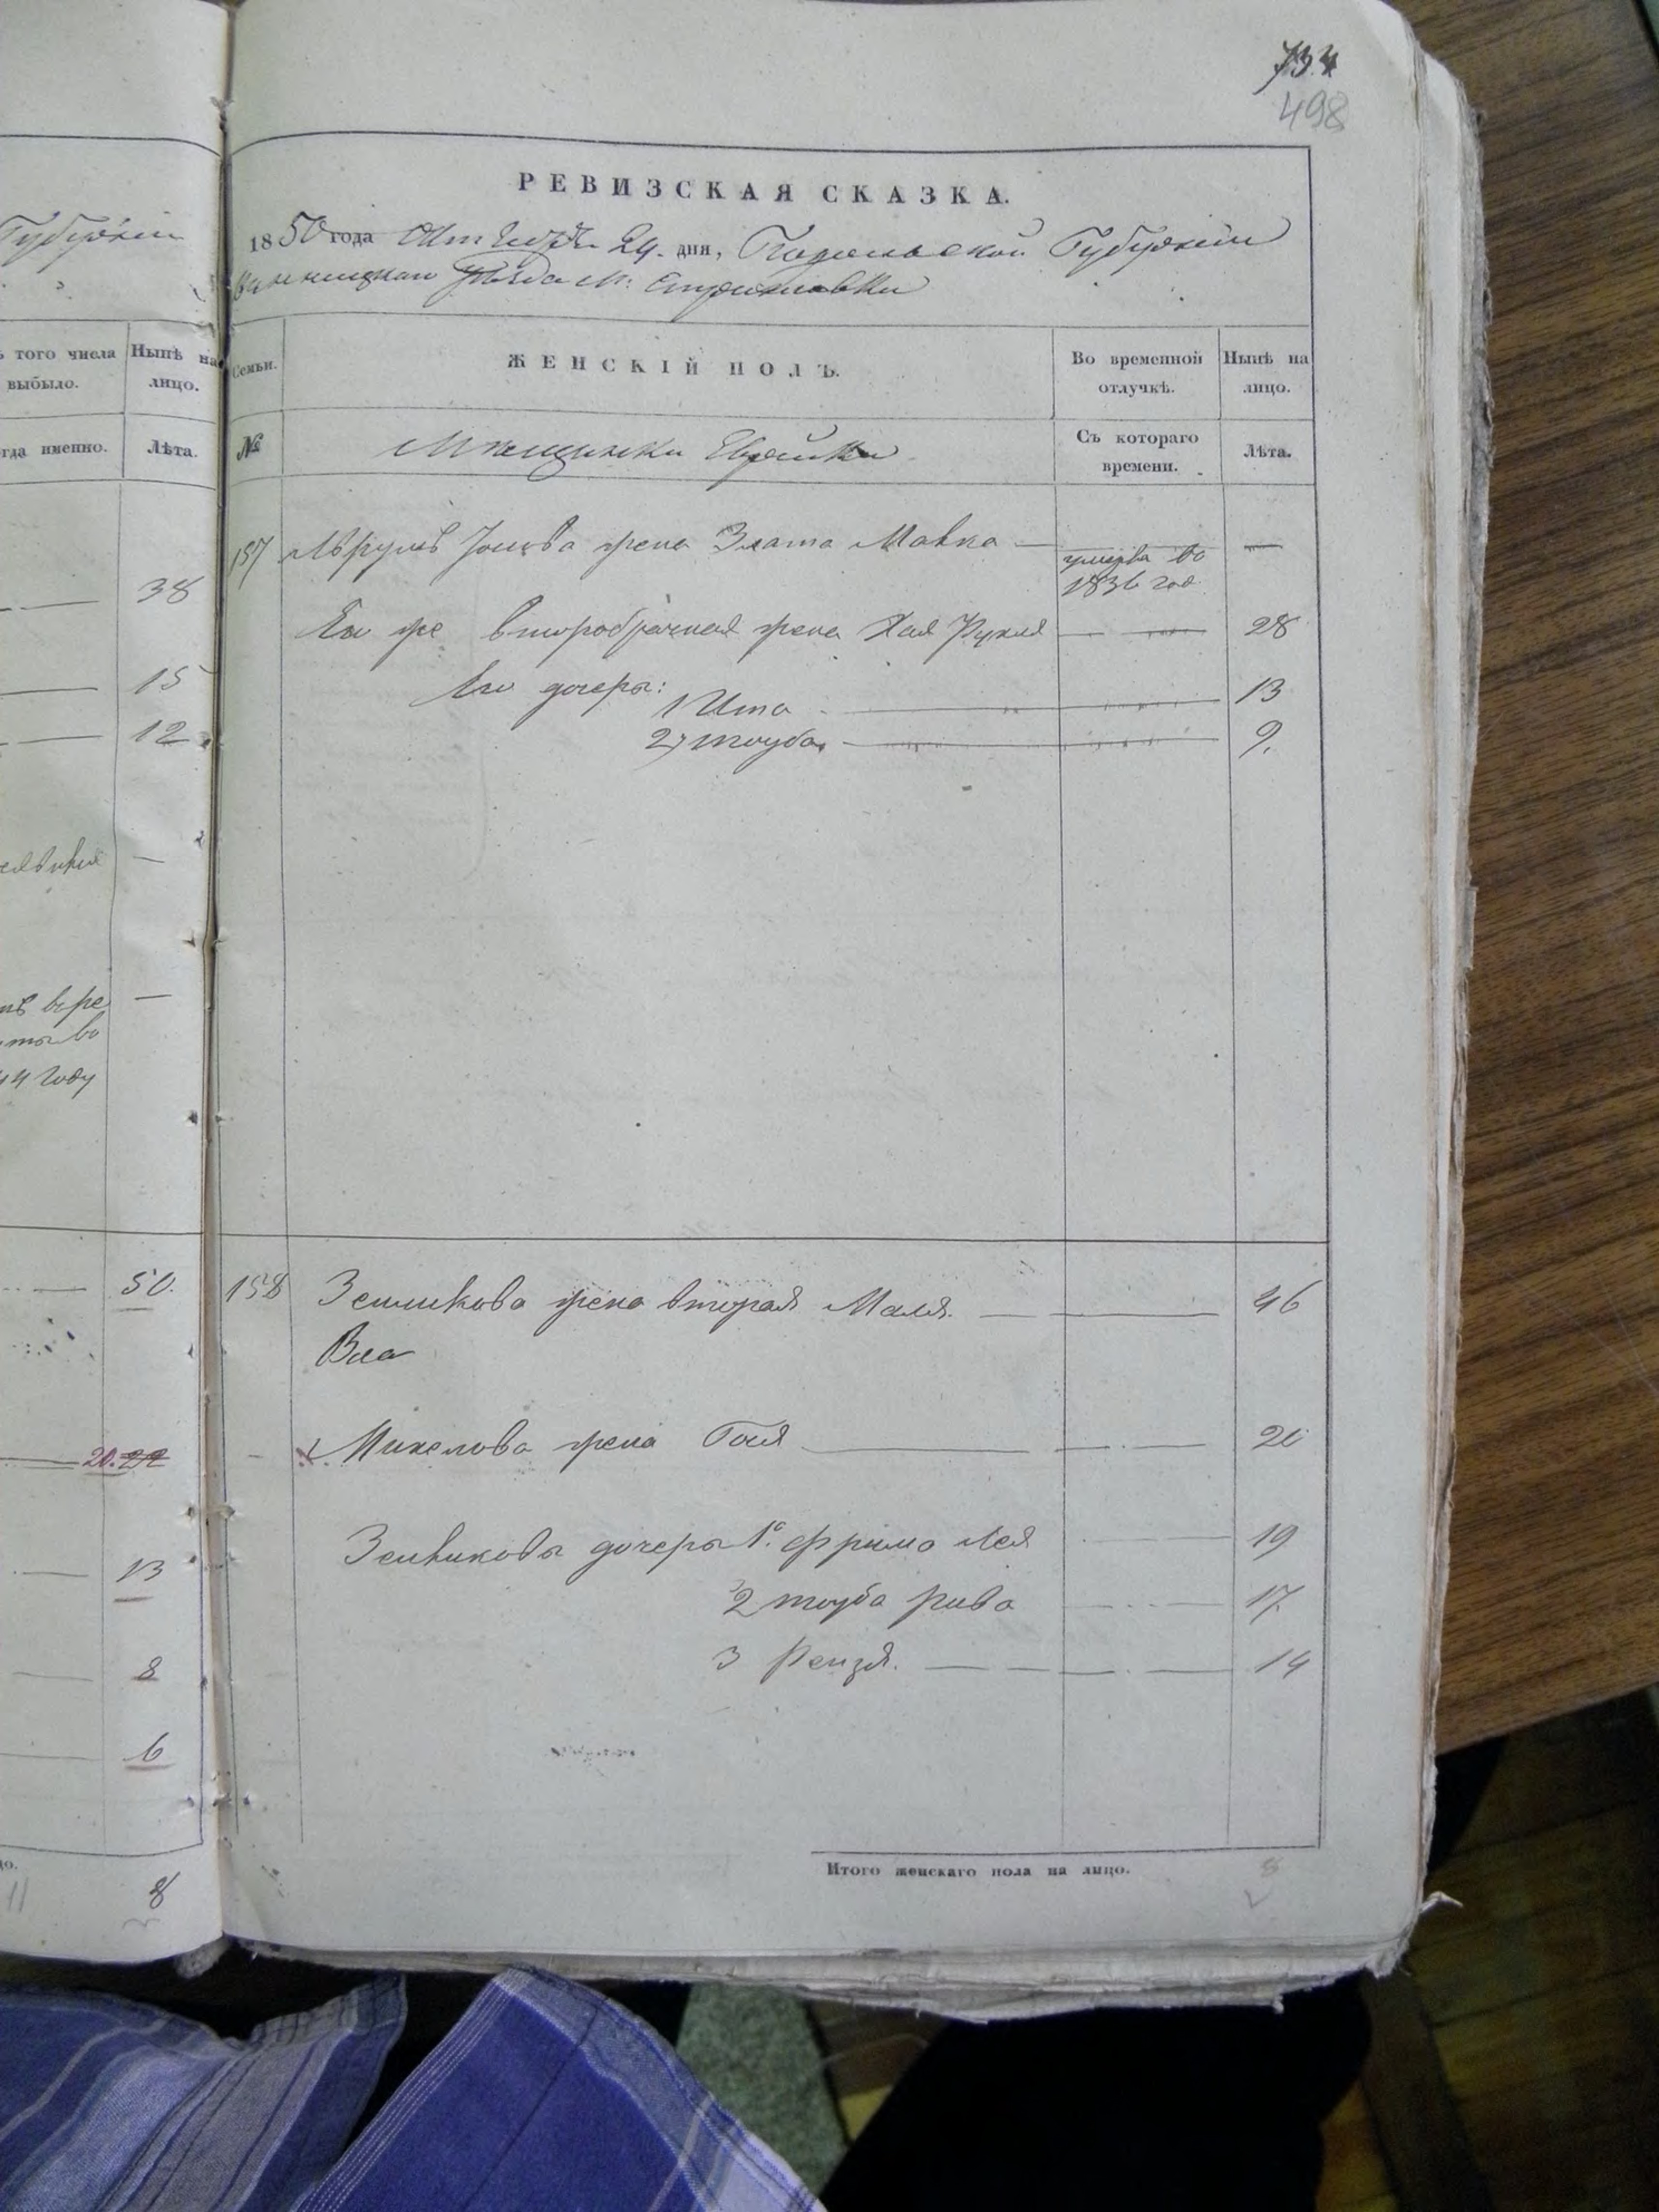 734
498
РЕВИЗСКАЯ СКАЗКА.
1850 года Октября 24. дня, Подольской Губерніи
Винницкаго Уѣзда М. Стрижавки
Губерніи
ъ того числа
выбыло.
Нынѣ на
лицо.
Семьи.
ЖЕНСКІЙ ПОЛЪ.
Во временной
отлучкѣ.
Нынѣ на
лицо.
огда именно.
Лѣта.
№
Мѣщанки Еврейки
Съ котораго
времени.
Лѣта.
157 жена Злата Мавка —
умерла во
1836 год
—
38
Его же второбрачная жена Хая Рухля — — 28
15
Его дочеры:
1 Ита — 13
12
2, тоуба — 9.
—
—
во
44 году
50.
158 жена вторая Маля. — — 46
Вла
20. 22
Михелова жена Гося — — 20
13
дочеры 1. Фрима Лея — 19
2 тоуба рива — 17
8
3 Рейзя. — — 14
6
Итого женскаго пола на лицо. 8
11
8